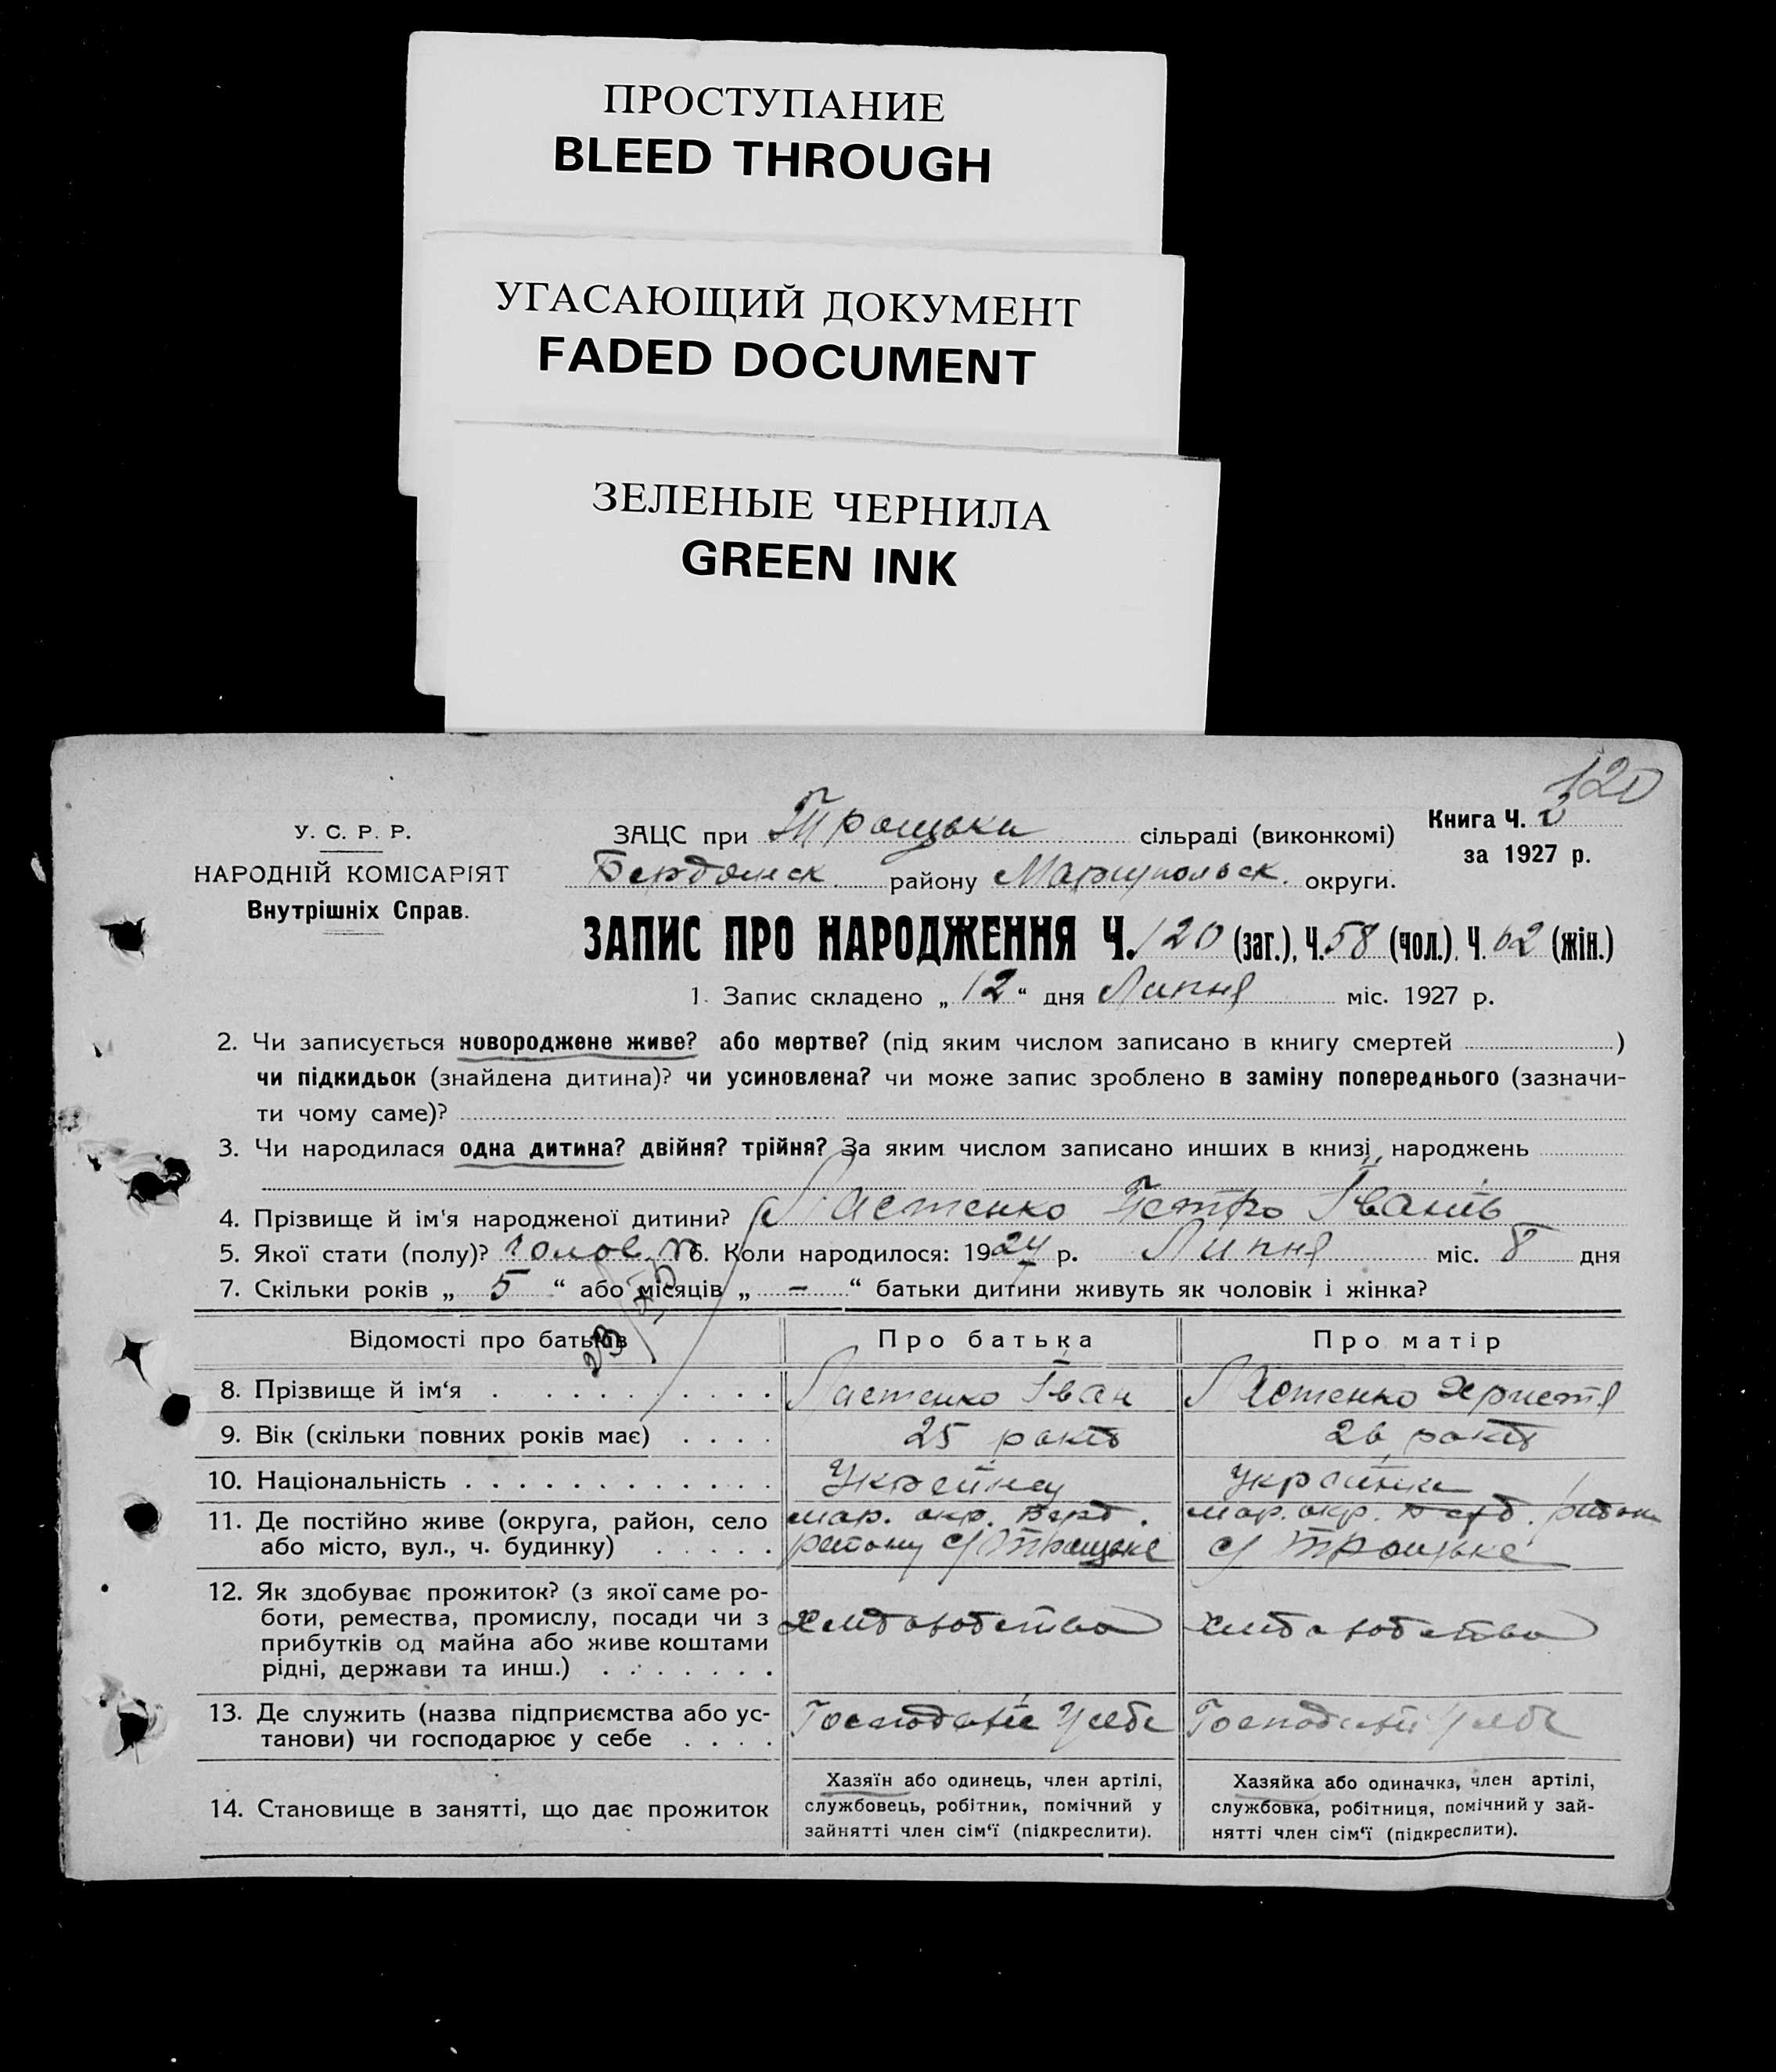 ПРОСТУПАНИЕ
BLEED THROUGH
УГАСАЮЩИЙ ДОКУМЕНТ
FADED DOCUMENT
ЗЕЛЕНЫЕ ЧЕРНИЛА
GREEN INK
120
У. С. Р. Р.
НАРОДНІЙ КОМІСАРІЯТ
Внутрішніх Справ.
ЗАЦС при Троицька сільраді (виконкомі)
Книга Ч. 3
за 1927 р.
Бердянск району Мариупольск. округи.
ЗАПИС ПРО НАРОДЖЕННЯ Ч. 120 (заг.), Ч. 58 (чол.), Ч. 62 (жін.)
1. Запис складено „ 12 “ дня Липня міс. 1927 р.
2. Чи записується новороджене живе? або мертве? (під яким числом записано в книгу смертей )
чи підкидьок (знайдена дитина)? чи усиновлена? чи може запис зроблено в заміну попереднього (зазначи-
ти чому саме)?
3. Чи народилася одна дитина? двійня? трійня? За яким числом записано инших в книзі народжень
4. Прізвище й ім'я народженої дитини? Ластенко Петро Іванів
5. Якої стати (полу)? 6. Коли народилося: 19 р. Липня міс. 8 дня
7. Скільки років „ 5 “ або місяців „ - “ батьки дитини живуть як чоловік і жінка?
Відомості про батьків
Про батька
Про матір
8. Прізвище й ім‘я . . . . . . . . . . Ластенко Іван Ластенко Христя
9. Вік (скільки повних років має) . . . . 25 років 26 років
10. Національність . . . . . . . . . . . . Українка
11. Де постійно живе (округа, район, село
або місто, вул., ч. будинку) . . . . .
мар. окр. Берд.
району с/ Троицьке
мар. окр. Берд. район
с/ Троицьке
12. Як здобуває прожиток? (з якої саме ро-
боти, ремества, промислу, посади чи з
прибутків од майна або живе коштами
рідні, держави та инш.) . . . . . . .
Хліборобство
Хліборобство
13. Де служить (назва підприємства або ус-
танови) чи господарює у себе . . . .
У себе
У себе
14. Становище в занятті, що дає прожиток
Хазяїн або одинець, член артілі,
службовець, робітник, помічний у
зайнятті член сім‘ї (підкреслити).
Хазяйка або одиначка, член артілі,
службовка, робітниця, помічний у зай-
нятті член сім‘ї (підкреслити).